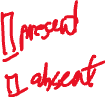 present
absent